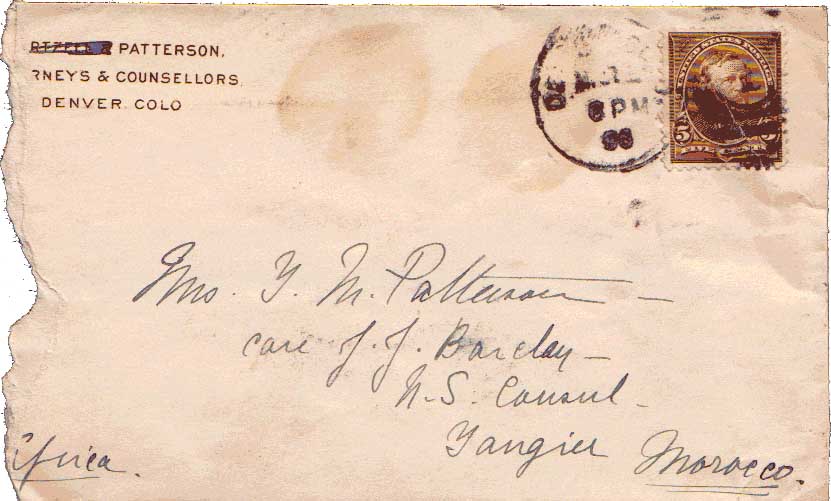 & PATTERSON,
RNEYS & COUNSELLORS,
DENVER. COLO
8 PM
96
UNITED STATES POSTAGE
5 5
Mrs. T. M. Patterson —
care J. J. Barclay —
U.S. Consul —
Tangier Morocco.
Africa.